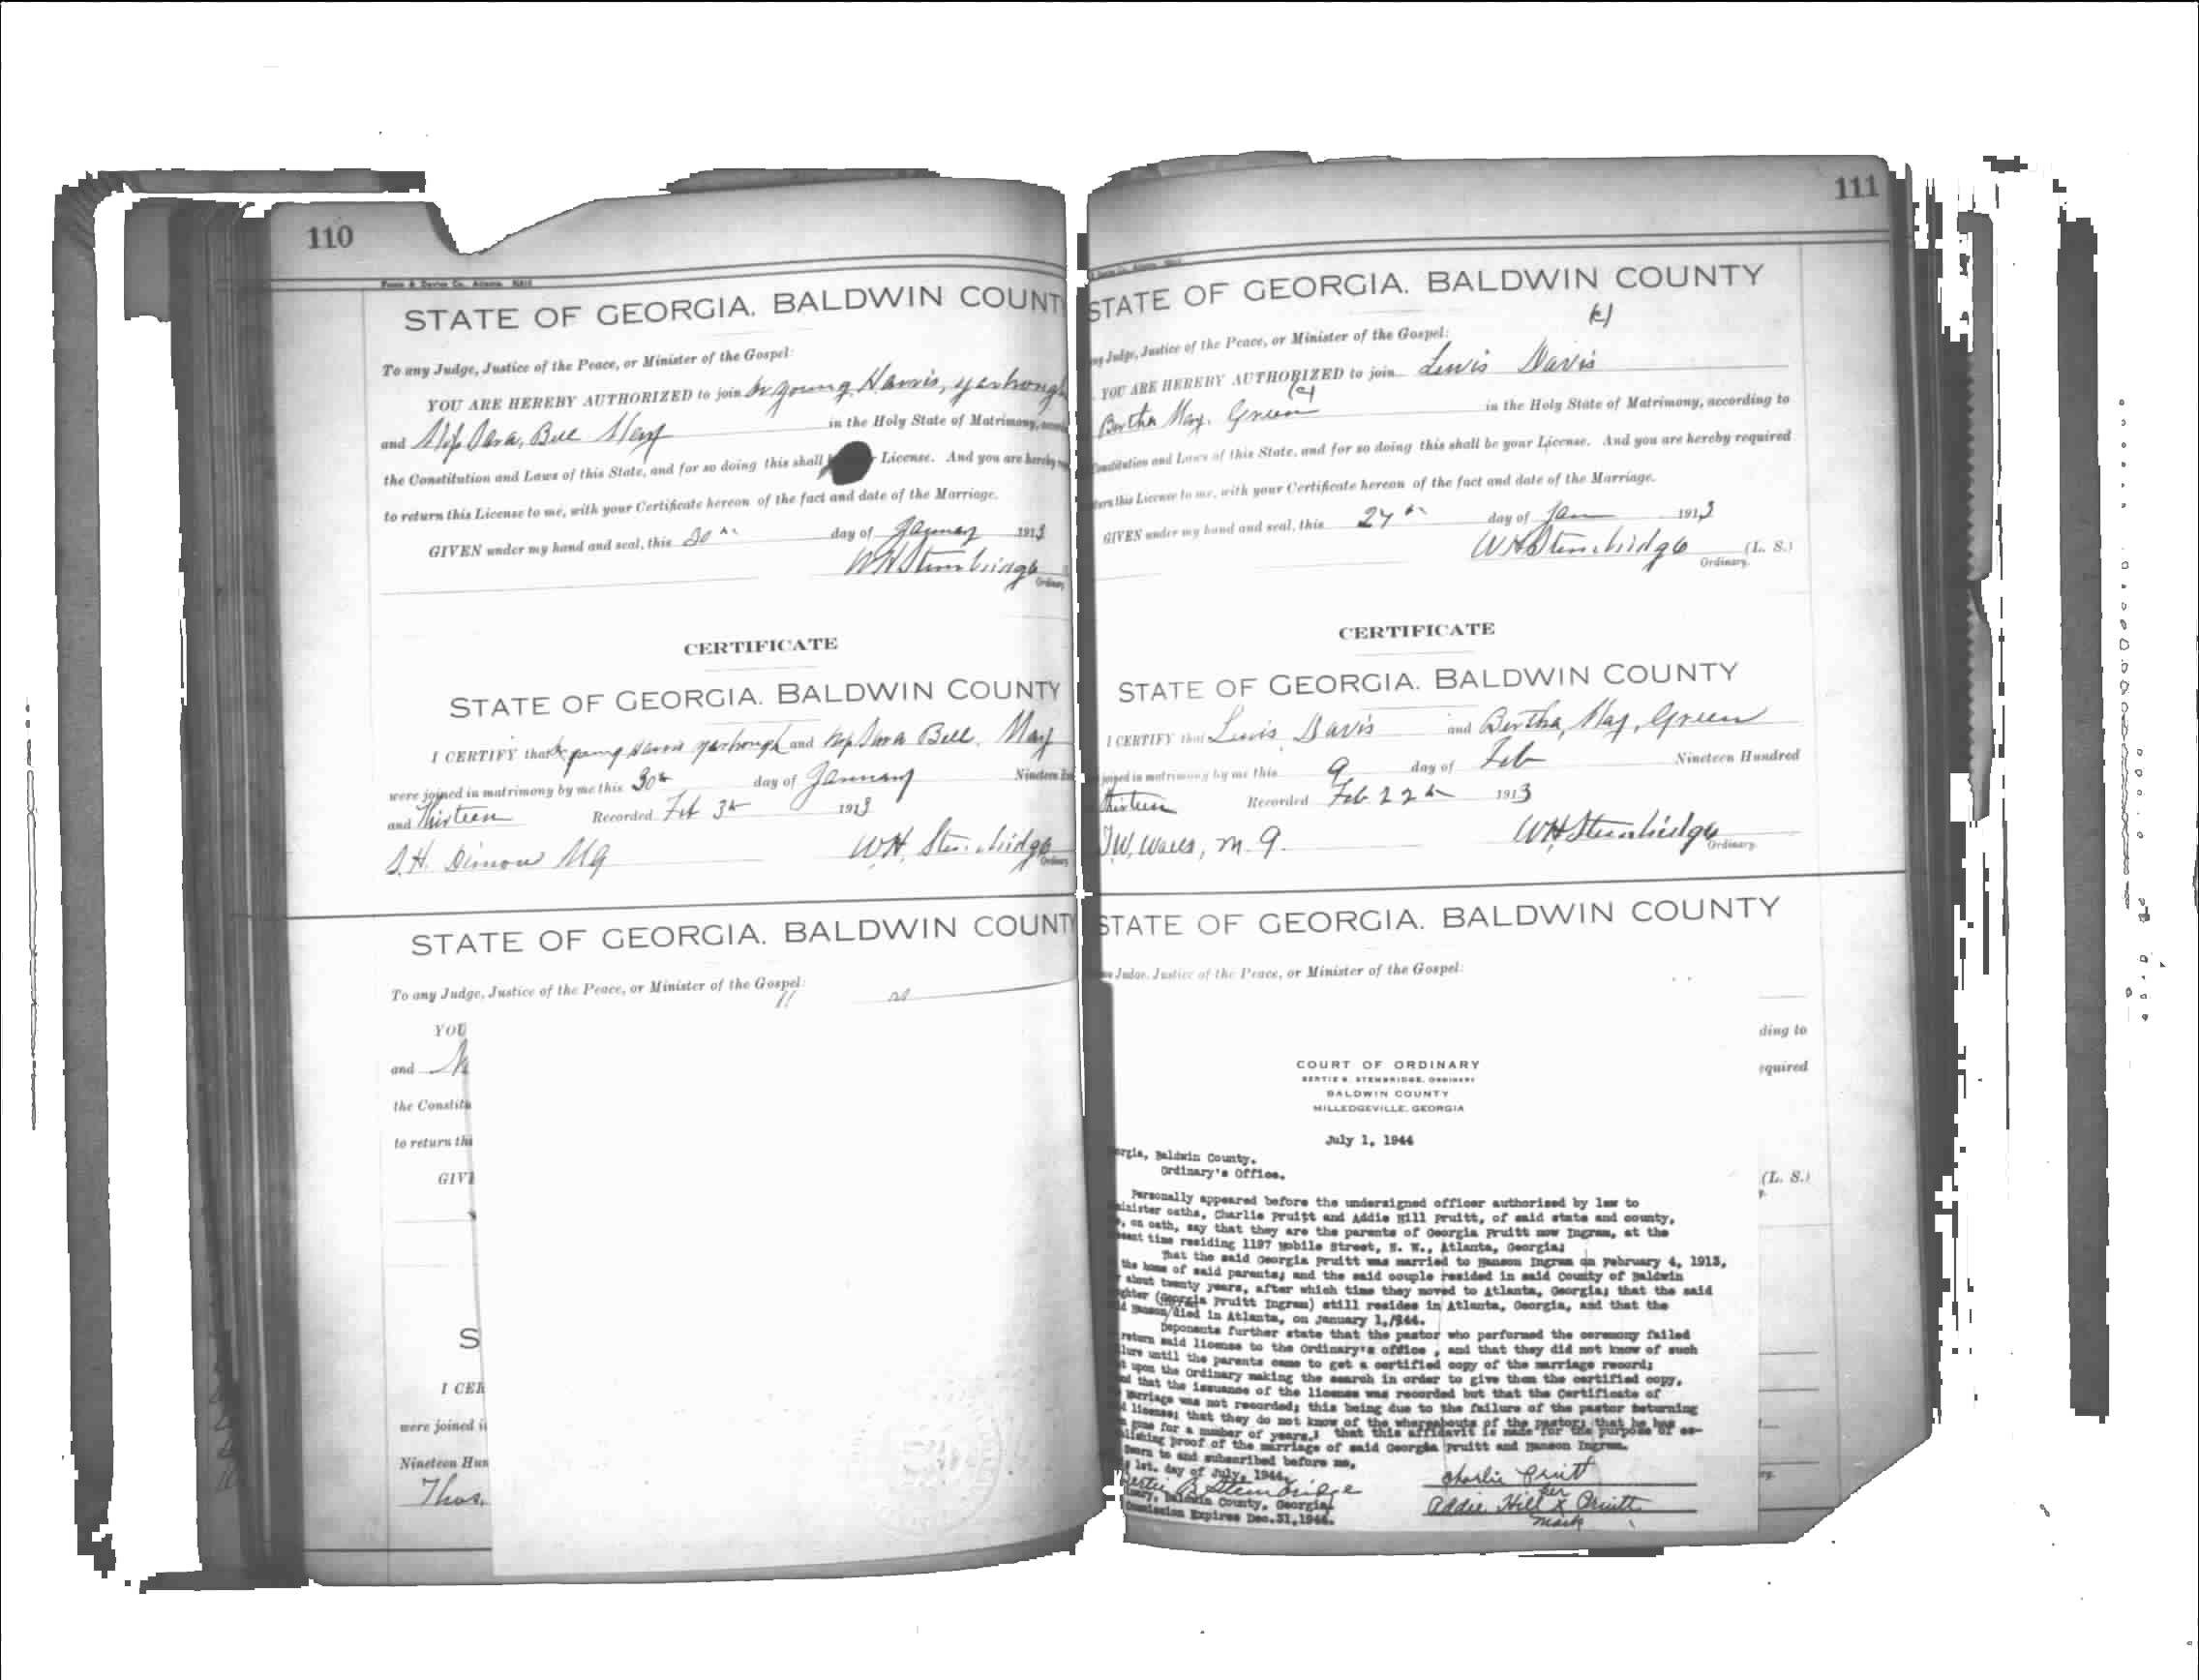 110
STATE OF GEORGIA. BALDWIN COUNT
To any Judge, Justice of the Peace, or Minister of the Gospel:
YOU ARE HEREBY AUTHORIZED to join Dr young Harris, yarbrough
and Miss Bell May
in the Holy State of Matrimony,
the Constitution and Laws of this State, and for so doing this shall License. And you are hereby
to return this License to me, with your Certificate hereon of the fact and date of the Marriage.
GIVEN under my hand and seal, this 30th day of January 1913
WH Stembridge
Ordinary
CERTIFICATE
STATE OF GEORGIA. BALDWIN COUNTY
I CERTIFY that Dr young Harris yarbrough and Bell, May
were joined in matrimony by me this 30th day of January Nineteen
and Thirteen Recorded Feb 3rd 1913
MG W.H. Stembridge
Ordinary
STATE OF GEORGIA. BALDWIN COUNTY
To any Judge, Justice of the Peace, or Minister of the Gospel:
YOU
and
the Constitu
to return thi
GIVE
S
I CER
were joined i
Nineteen Hun
Thos.
111
STATE OF GEORGIA. BALDWIN COUNTY
(c)
ny Judge, Justice of the Peace, or Minister of the Gospel:
YOU ARE HEREBY AUTHORIZED to join Lewis Davis
(c)
Bertha May. Green in the Holy State of Matrimony, according to
Constitution and Laws of this State, and for so doing this shall be your License. And you are hereby required
turn this License to me, with your Certificate hereon of the fact and date of the Marriage.
GIVEN under my hand and seal, this 24th day of Jan 1913
WH Stembridge (L. S.)
Ordinary.
CERTIFICATE
STATE OF GEORGIA. BALDWIN COUNTY
I CERTIFY that Lewis Davis and Bertha, May, Green
joined in matrimony by me this 9 day of Feb Nineteen Hundred
Thirteen Recorded Feb 22th 1913
M.G. WH Stembridge
Ordinary.
STATE OF GEORGIA. BALDWIN COUNTY
Judge, Justice of the Peace, or Minister of the Gospel:
ding to
equired
(L. S.)
COURT OF ORDINARY
BERTIE B. STEMBRIDGE, ORDINARY
BALDWIN COUNTY
MILLEDGEVILLE, GEORGIA
July 1, 1944
orgia, Baldwin County.
Ordinary's Office.
Personally appeared before the undersigned officer authorized by law to
minister oaths, Charlie Pruitt and Addie Hill Pruitt, of said state and county,
, on oath, say that they are the parents of Georgia Pruitt now Ingram, at the
sent time residing 1197 Mobile Street, N. W., Atlanta, Georgia;
That the said Georgia Pruitt was married to Hanson Ingram on February 4, 1913,
the home of said parents; and the said couple resided in said County of Baldwin
about twenty years, after which time they moved to Atlanta, Georgia; that the said
ghter (Georgia Pruitt Ingram) still resides in Atlanta, Georgia, and that the
d Hanson/died in Atlanta, on January 1,/944.
Deponents further state that the pastor who performed the ceremony failed
return said license to the Ordinary's office , and that they did not know of such
lure until the parents came to get a certified copy of the marriage record;
t upon the Ordinary making the search in order to give them the certified copy,
nd that the issuance of the license was recorded but that the Certificate of
Marriage was not recorded; this being due to the failure of the pastor returning
d license; that they do not know of the whereabouts of the pastor; that he has
n gone for a number of years.; that this affidavit is made for the purpose of es-
lishing proof of the marriage of said Georgia Pruitt and Hanson Ingram.
Sworn to and subscribed before me,
1st. day of July, 1944.
Bertie B Stembridge
nary, Baldwin County, Georgia.
Commission Expires Dec.31,1944.
Charlie Pruitt
her
Addie Hill X Pruitt
mark